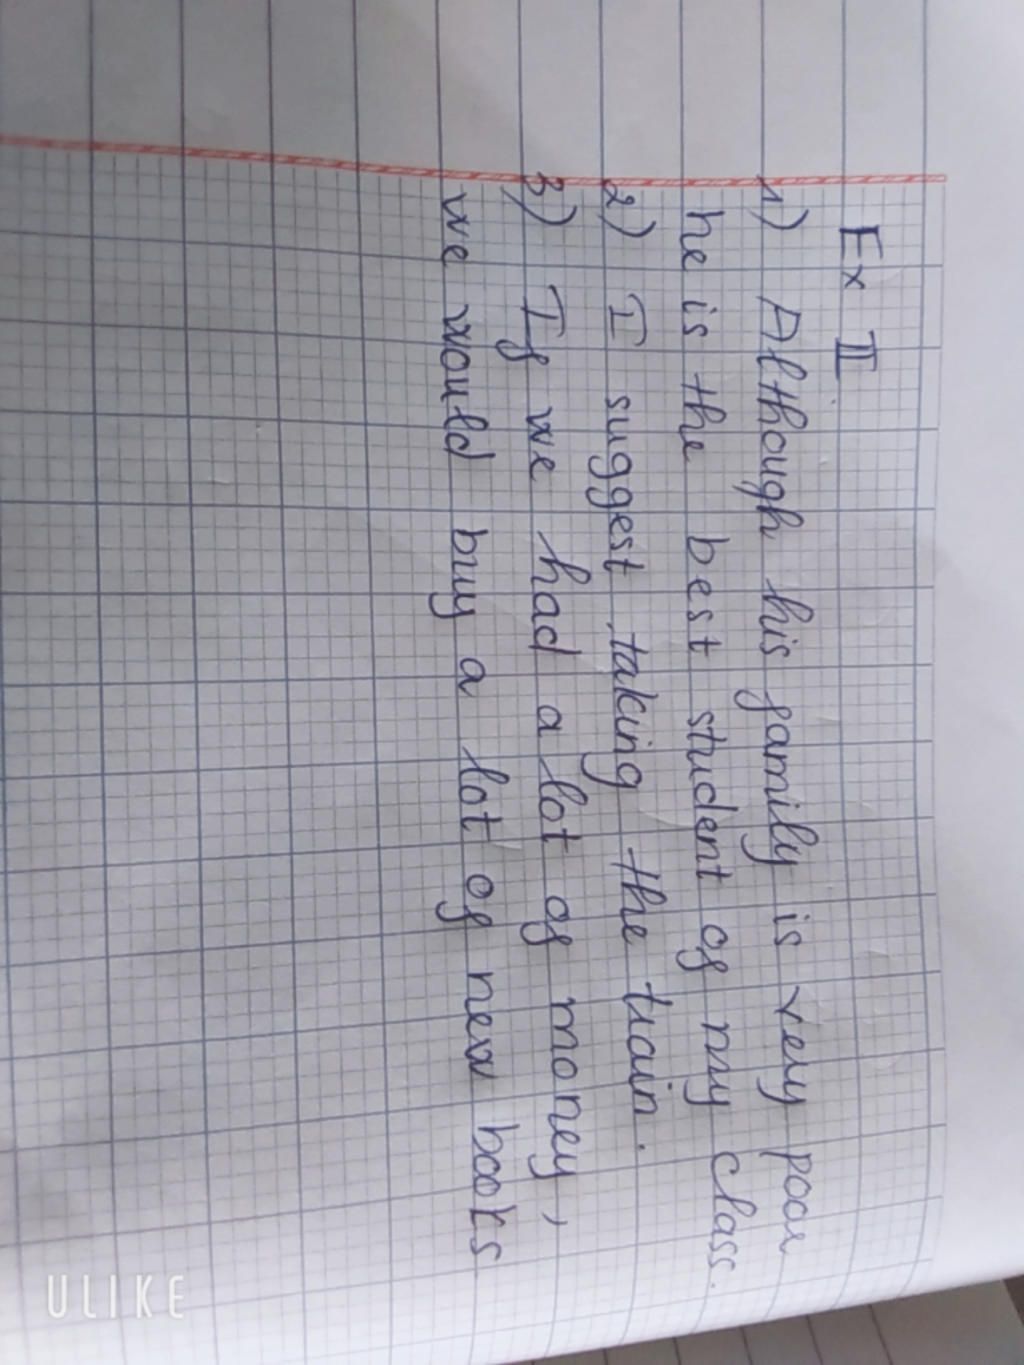 Ex II
1) Although his family is very poor
he is the best student of my class.
2) I suggest taking the train.
3) If we had a lot of money,
we would buy a lot of new books
ULIKE